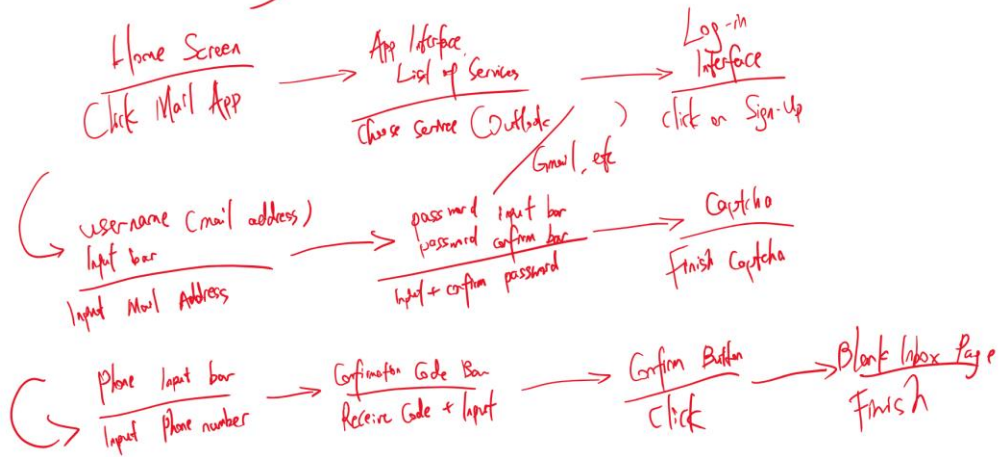 Home Screen
Click Mail App
App Interface
List of Services
Choose Service (Outlook
Gmail, etc
)
Log-in
Interface
click on Sign-Up
username (mail address)
Input bar
Input Mail Address
password input bar
password confirm bar
Input + confirm password
Captcha
Finish Captcha
Phone Input bar
Input Phone number
Confirmation Code Bar
Receive Code + Input
Confirm Button
Click
Blank Inbox Page
Finish